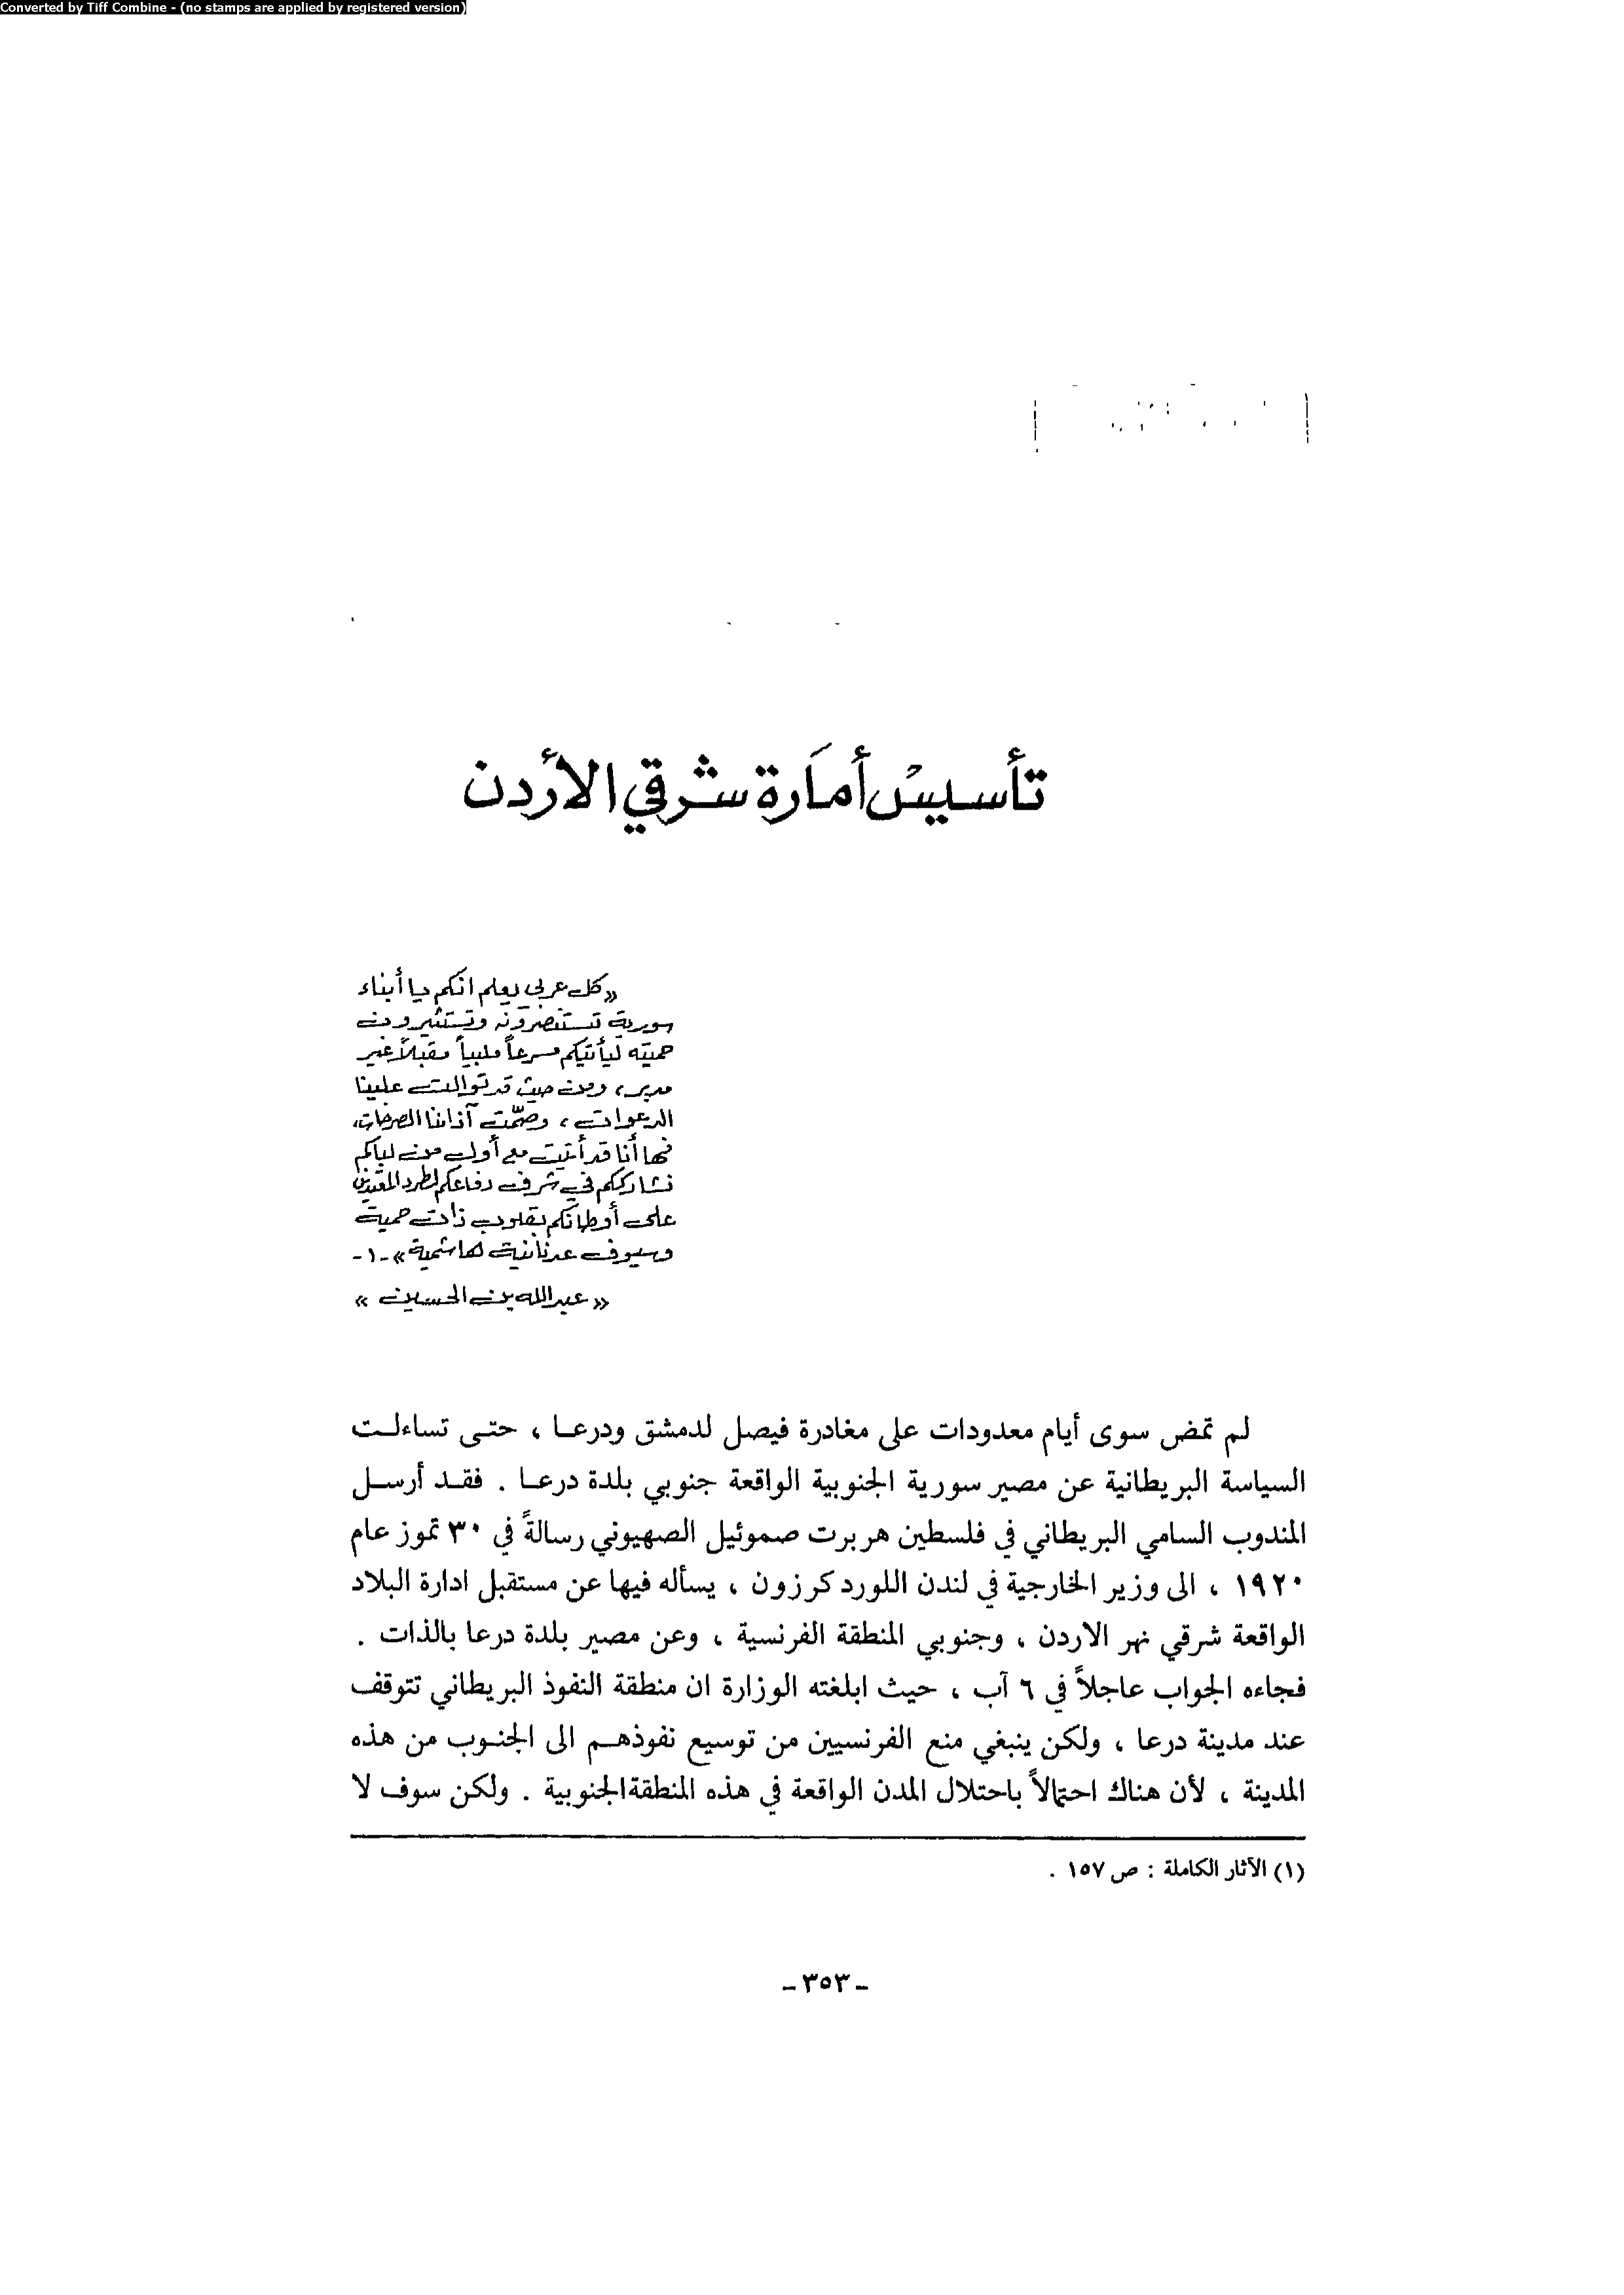 Converted by Tiff Combine - (no stamps are applied by registered version)
تأسيس أمارة شرقي الأردن
«كل عربي يعلم انكم يا أبناء
سورية تستنصرونه وتستثيرون
حميته ليأتيكم مسرعاً ملبياً مقبلاً غير
مدبر، ومن حيث قد توالت علينا
الدعوات، وصمّت آذاننا الصرخات،
فها أنا قد أتيت مع أول من لباكم
نشارككم في شرف دفاعكم لطرد المعتدين
على أوطانكم بقلوب ذات حمية
وسيوف عدنانية هاشمية» -١-
«عبدالله بن الحسين»
لم تمض سوى أيام معدودات على مغادرة فيصل لدمشق ودرعا ، حتى تساءلت
السياسة البريطانية عن مصير سورية الجنوبية الواقعة جنوبي بلدة درعا . فقد أرسل
المندوب السامي البريطاني في فلسطين هربرت صموئيل الصهيوني رسالةً في ٣٠ تموز عام
١٩٢٠ ، الى وزير الخارجية في لندن اللورد كرزون ، يسأله فيها عن مستقبل ادارة البلاد
الواقعة شرقي نهر الاردن ، وجنوبي المنطقة الفرنسية ، وعن مصير بلدة درعا بالذات .
فجاءه الجواب عاجلاً في ٦ آب ، حيث ابلغته الوزارة ان منطقة النفوذ البريطاني تتوقف
عند مدينة درعا ، ولكن ينبغي منع الفرنسيين من توسيع نفوذهم الى الجنوب من هذه
المدينة ، لأن هناك احتمالاً باحتلال المدن الواقعة في هذه المنطقة الجنوبية . ولكن سوف لا
(١) الآثار الكاملة : ص ١٥٧ .
- ٣٥٣ -